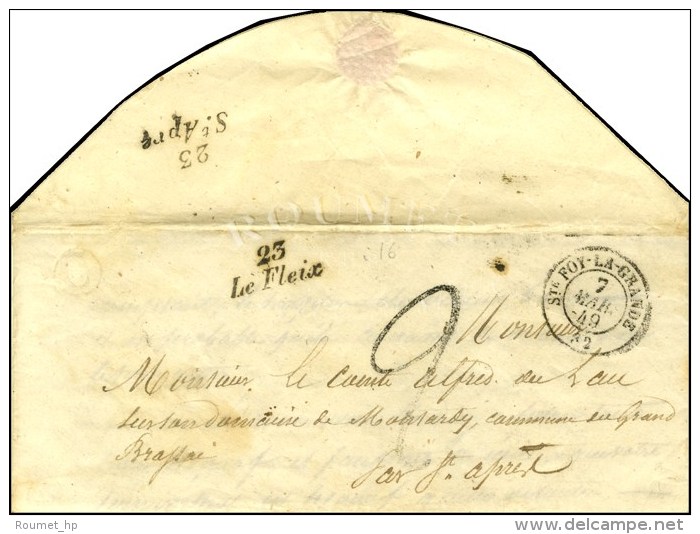 23
St Apre
ROUMET
16
23
Le Fleix
STE FOY-LA-GRANDE
7
MAR.
49
32
Monsieur
Monsieur le comte alfred du Lau
sur son domaine de Monsardy, commune du Grand
Brassac
Par St. aprest
Roumet_hp
delcampe.net